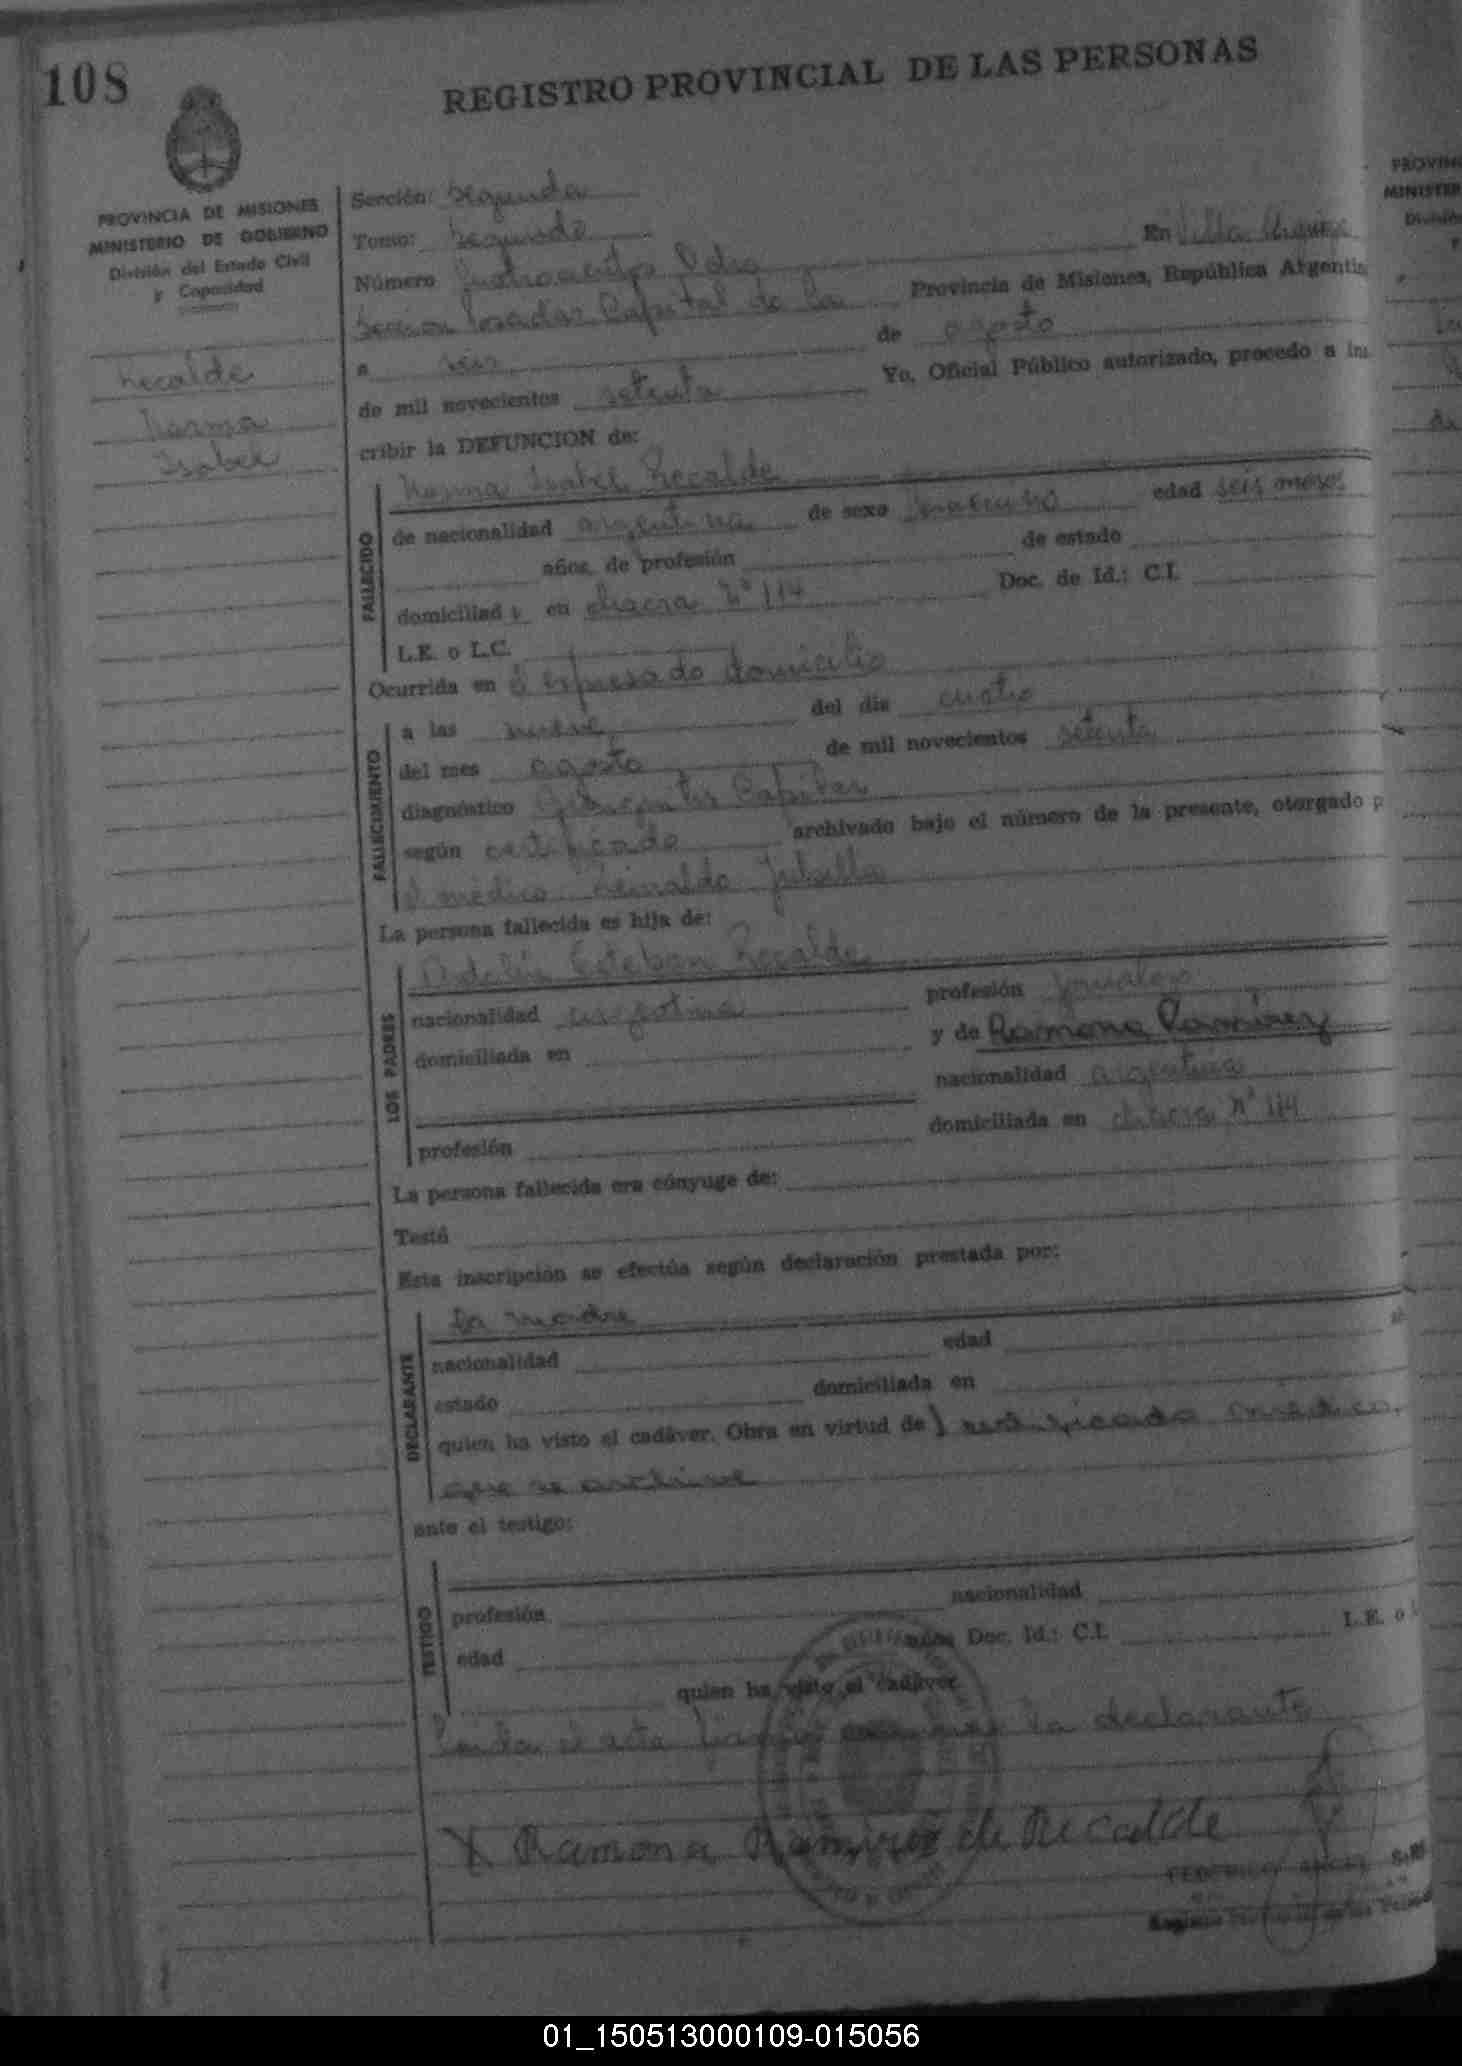 108
REGISTRO PROVINCIAL DE LAS PERSONAS
PROVINCIA DE MISIONES
MINISTERIO DE GOBIERNO
División del Estado Civil
y Capacidad
Recalde
Norma
Isabel
Sección: Segunda
Tomo: Segundo
Número Cuatrocientos Ocho
En Villa Urquiza
Seccion Posadas Capital de la Provincia de Misiones, República Argentin
a seis de agosto
de mil novecientos setenta Yo, Oficial Público autorizado, procedo a ins
cribir la DEFUNCION de:
FALLECIDO
Norma Isabel Recalde
de nacionalidad argentina de sexo femenino edad seis meses
años, de profesión de estado
domiciliad en chacra Nº 114 Doc. de Id.: C.I.
L.E. o L.C.
Ocurrida en expresado domicilio
FALLECIMIENTO
a las nueve del día cuatro
del mes agosto de mil novecientos setenta
diagnóstico
según certificado archivado bajo el número de la presente, otorgado p
el médico Reinaldo
La persona fallecida es hija de:
LOS PADRES
Esteban Recalde
nacionalidad argentina profesión jornalero
domiciliada en y de Ramona Ramirez
nacionalidad argentina
profesión domiciliada en chacra Nº 114
La persona fallecida era cónyuge de:
Testó
Esta inscripción se efectúa según declaración prestada por:
DECLARANTE
la madre
nacionalidad edad
estado domiciliada en
quien ha visto el cadáver. Obra en virtud de certificado médico
que se archiva
ante el testigo:
TESTIGO
profesión nacionalidad
edad años Doc. Id.: C.I. L.E. o
quien ha visto el cadáver.
Leída el acta la declarante
X Ramona Ramirez de Recalde
PROVIN
MINISTER
División
01_150513000109-015056